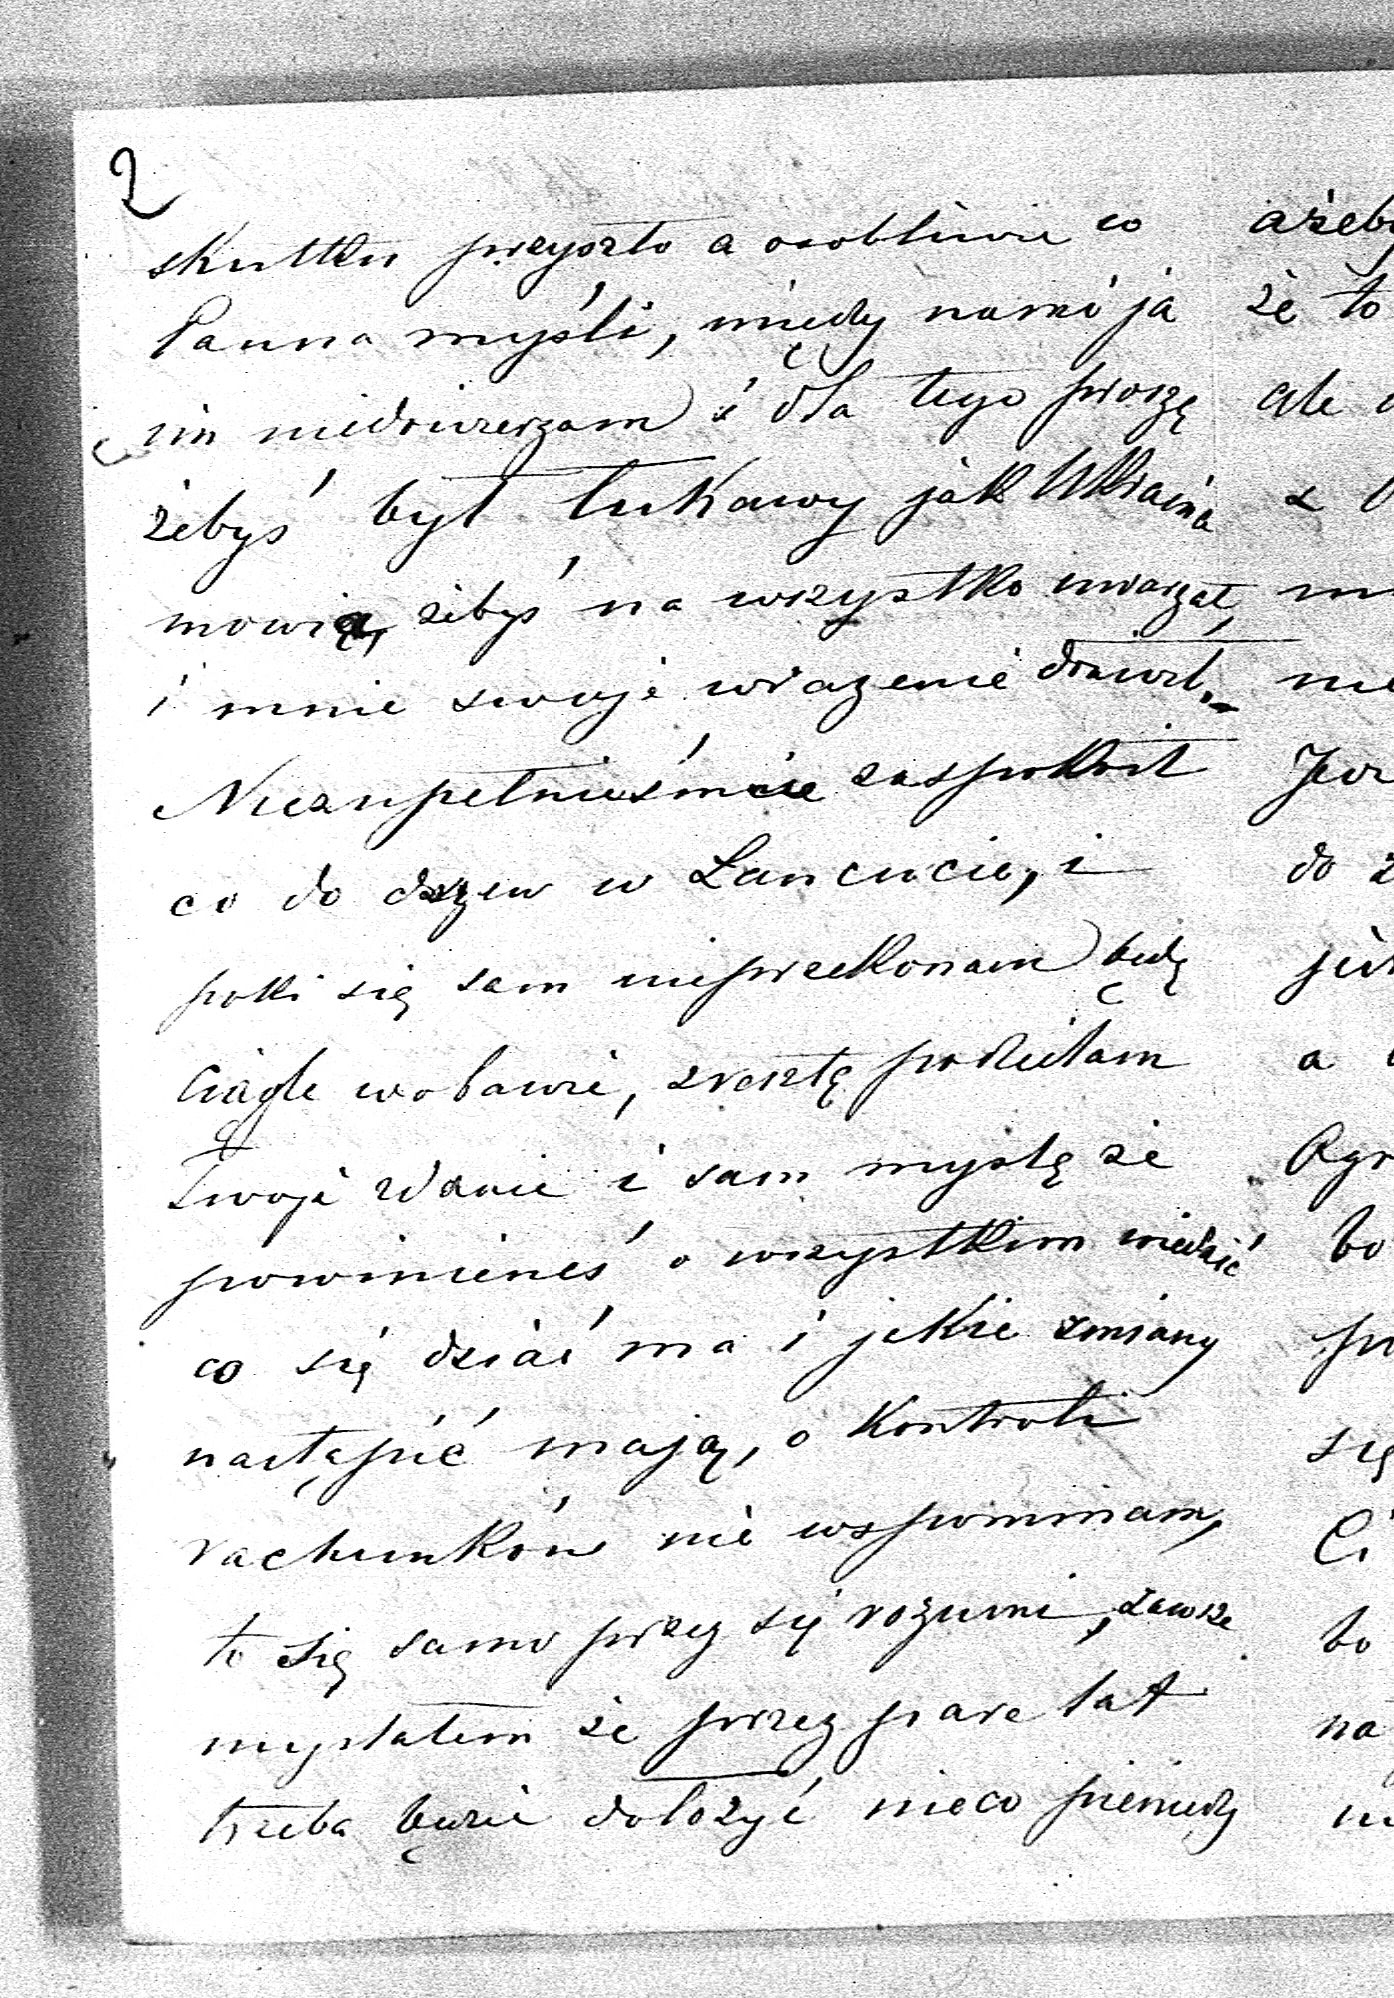 2
skutku przyszło a osobliwie co
Panna myśli, między nami ja
im niedowierzam i dla tego proszę
żebyś był łukawy jak Ukraina
mowią, żebyś na wszystko uważał,
i mnie swoje wrażenie
Niezupełnieś mnie zaspokoił
co do drzew w Łancucie, i
poki się sam nieprzekonam będę
Ciągle w obawie, zresztą podzielam
Twoje zdanie i sam myślę że
powinieneś o wszystkim wiedzić
co się dziać ma i jakie zmiany
nastąpić mają, o Kontroli
rachunków nie wspominam,
to się samo przez się rozumi, zawsze
myslałem że przez pare lat
trzeba będzie dołożyć nieco pieniędzy
ażeby
że to
ale
a
do
a
bo
się
Ci
bo
na